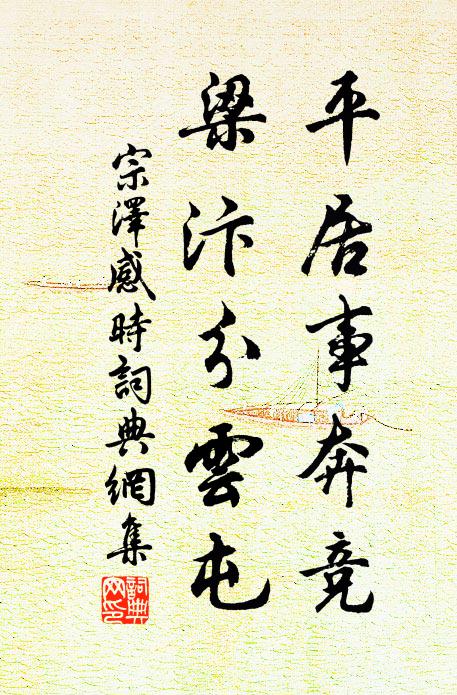 平居事奔竞
梁汴分雲屯
宗澤感時詞典網集
詞典
网印